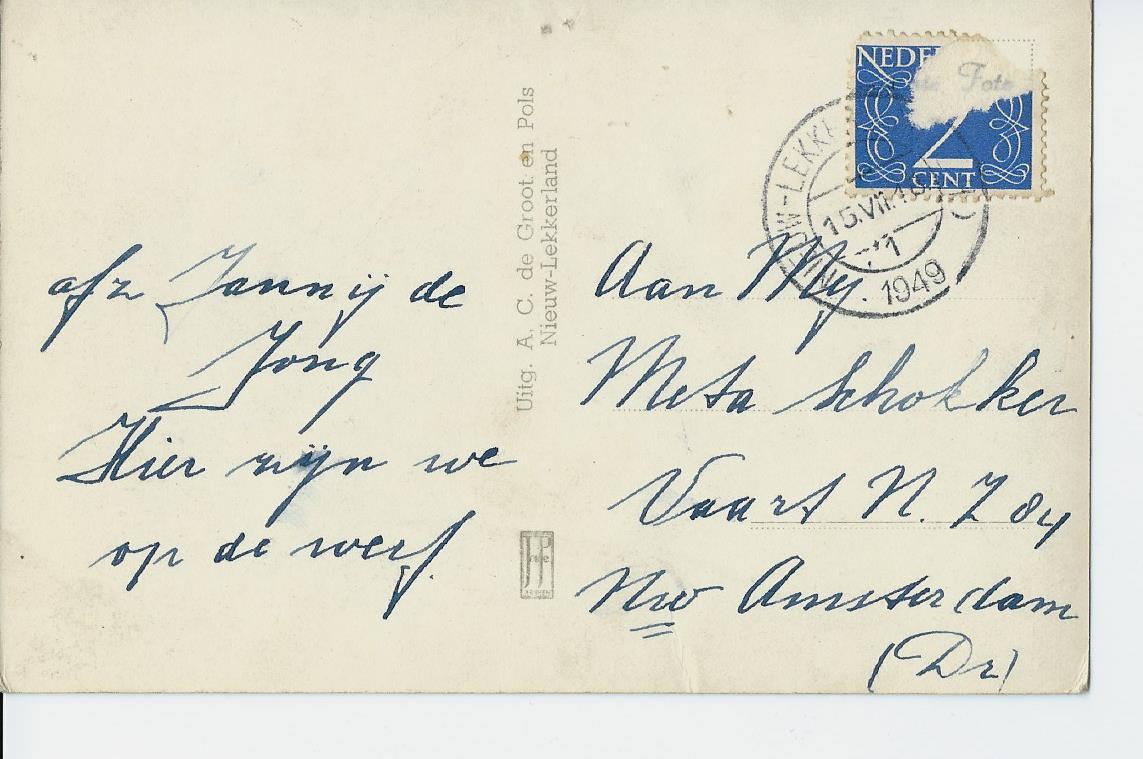 afz Jannij de
Jong
Hier zijn we
op de werf.
Uitg. A. C. de Groot en Pols
Nieuw-Lekkerland
NEDE
Foto
2
CENT
NIEUW-LEKKE
15.VII.49
1
1949
Aan Mej.
Meta Schokker
Vaart N. Z 84
Nw Amsterdam
(Dr)